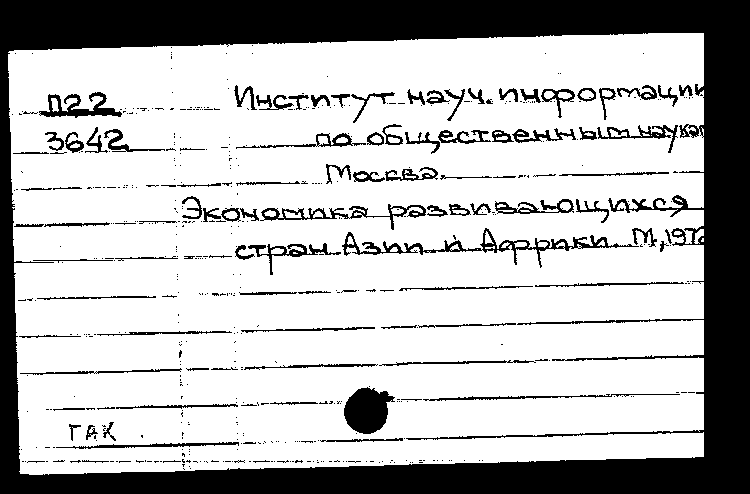 П22
3642
Институт науч. информации
по общественным наукам
Москва.
Экономика развивающихся
стран Азии и Африки. М., 1972
ГАК